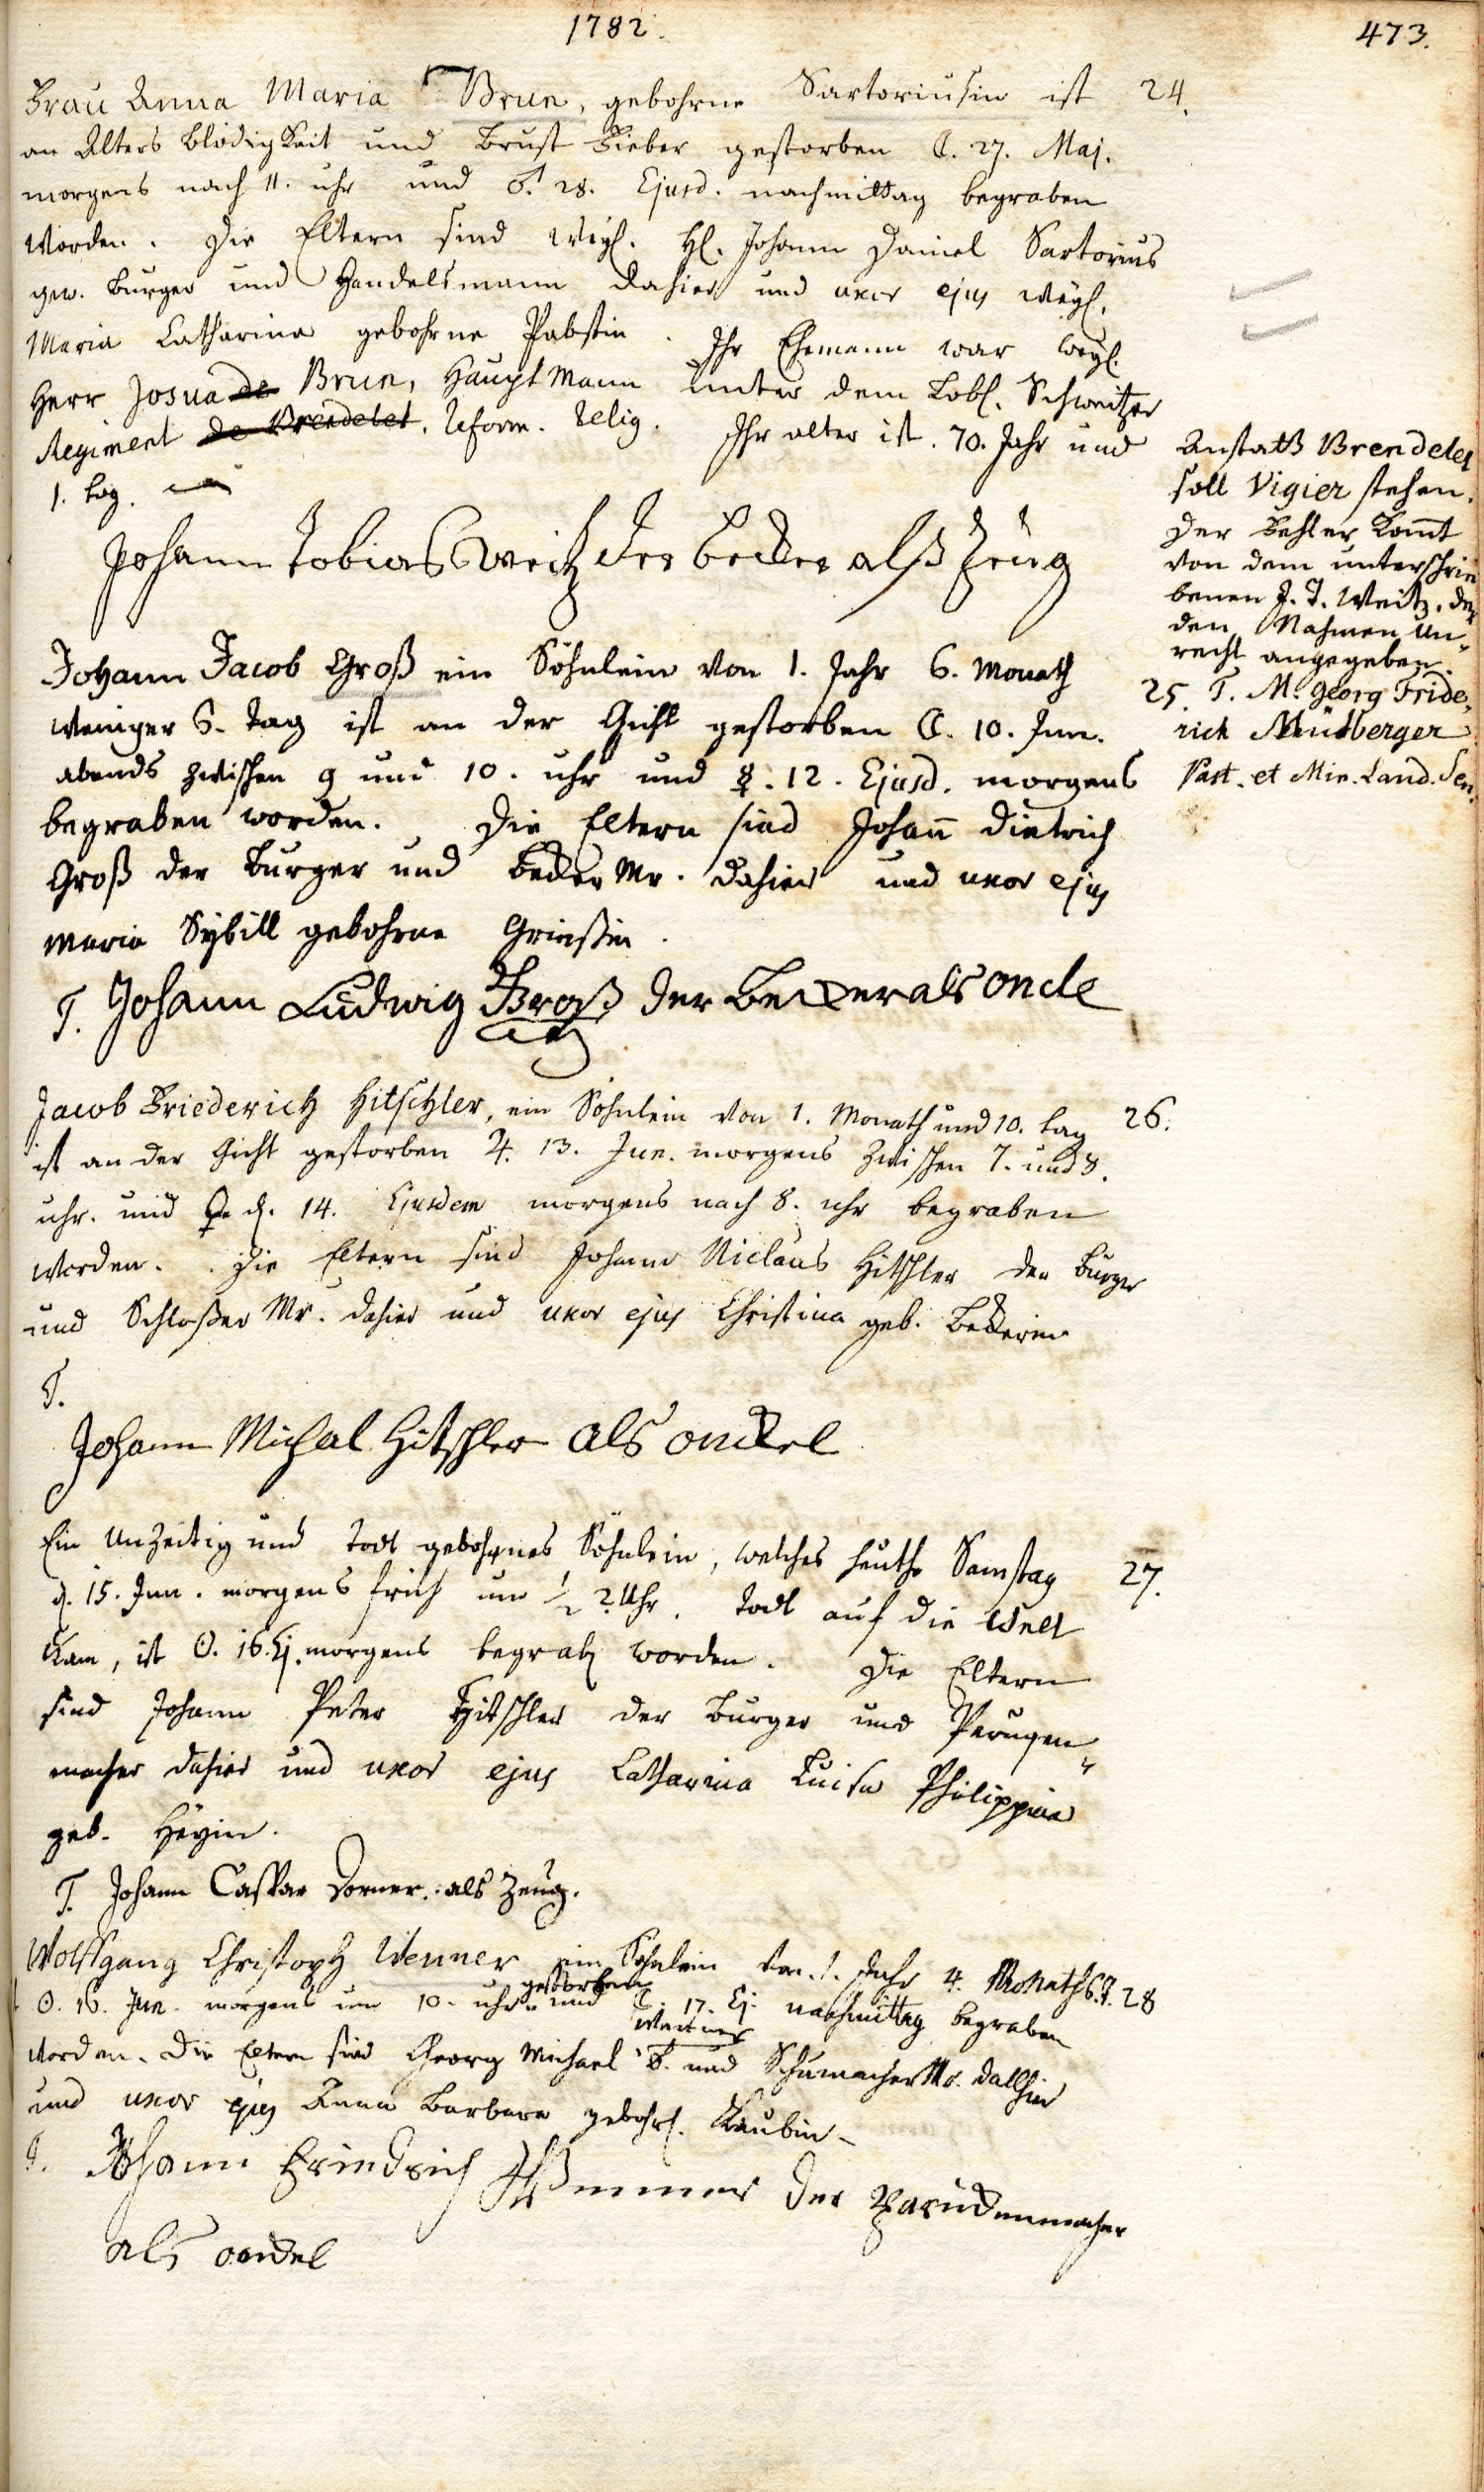 1782.
473.
Frau Anna Maria Brun, gebohrne Sartoriusin ist
24.
an Alters Blödigkeit und Brust Fieber gestorben ☾. 27. Maj.
morgens nach 11. uhr und ♂. 28. Ejusd. nachmittag begraben
worden. Die Eltern sind weyl. H. Johann Daniel Sartorius
gew. Burger und Handelsmann dahier und uxor ejus weyl.
Maria Catharina gebohrne Pabstin. Ihr Ehemann war weyl.
Herr Josua de Brun, Hauptmann unter dem Löbl. Schweitzer
Regiment de Brendelet. Reform. Relig. Ihr alter ist. 70. Jahr und
1. tag.
Johann Tobias Weitz der becker alß Zeug
Anstatt Brendeles
soll Vigier stehen.
Der Fehler komt
von dem unterschrie
benen J. T. Weitz, der
den Nahmen un-
recht angegeben.
T. M. Georg Fride-
rich Mürberger
Past. et Min. Land. Sen.
Johann Jacob Groß ein Söhnlein von 1. Jahr 6. Monath
25.
weniger 6. Tag ist an der Gicht gestorben ☾. 10. Jun.
abends zwischen 9 und 10. uhr und ☿. 12. Ejusd. morgens
begraben worden. Die Eltern sind Johann Dietrich
Groß der Burger und Becker Mr. dahier und uxor ejus
Maria Sybill gebohrne Griessin.
T. Johann Ludwig Groß der Becker als oncle
Jacob Friederich Hitschler, ein Söhnlein von 1. Monath und 10. tag
26.
ist an der Gicht gestorben ♃. 13. Jun. morgens zwischen 7. und 8.
uhr. und ♀. d. 14. Ejusdem morgens nach 8. uhr begraben
worden. Die Eltern sind Johann Niclaus Hitschler der Burger
und Schloßer Mr. dahier und uxor ejus Christina geb. Beckerin
T.
Johann Michal Hitschler als onckel
Ein Unzeitig und todt gebohrnes Söhnlein, welches heuthe Samstag
27.
d. 15. Jun. morgens früh um 1/2 2. Uhr. todt auf die Welt
kam, ist ☉. 16. Ej. morgens begrab. worden. Die Eltern
sind Johann Peter Hitschler der Burger und Peruquen-
macher dahier und uxor ejus Catharina Luisa Philippina
geb. Heyin.
T. Johann Caspar Dorner. als Zeug.
Wolfgang Christoph Wenner ein Söhnlein von 1. Jahr 4. Monath 6. T.
28
☉. 16. Jun. morgens um 10. uhr gestorben und ☾. 17. Ej. nachmittag begraben
worden. Die Eltern sind Georg Michael Wenner B. und Schumacher Mr. dahier
und uxor ejus Anna Barbara gebohr. Raubin.
T. Johann Friedrich der Parückenmacher
als onckel